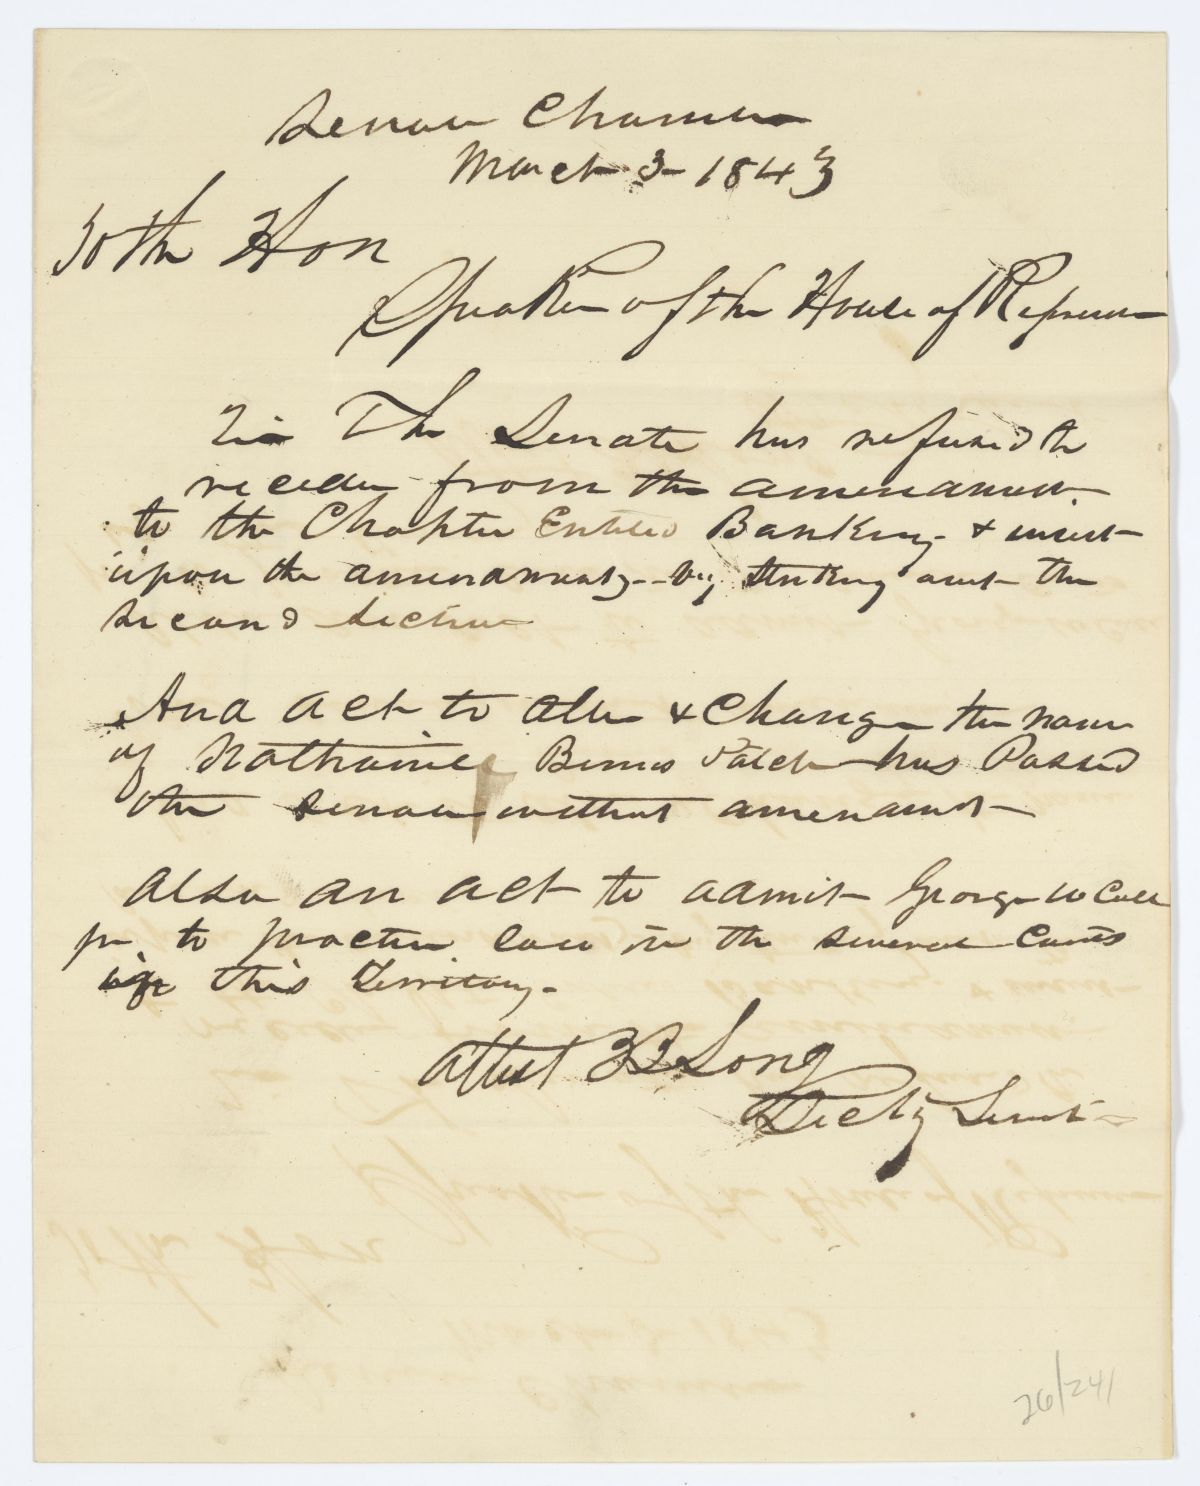 Senate Chamber
March 3 - 1843
To the Hon
Speaker of the House of Represen
The Senate has refused to
recede from the amendment
to the Chapter Entitled Banking & insist
upon the amendments by striking out the
second section
And act to alter & Change the name
of Nathaniel has Passed
the Senate without amendment
also an act to admit George W Call
Jr to practice law in the several Courts
in this Territory.
attest Long
Secty Senate
26/241